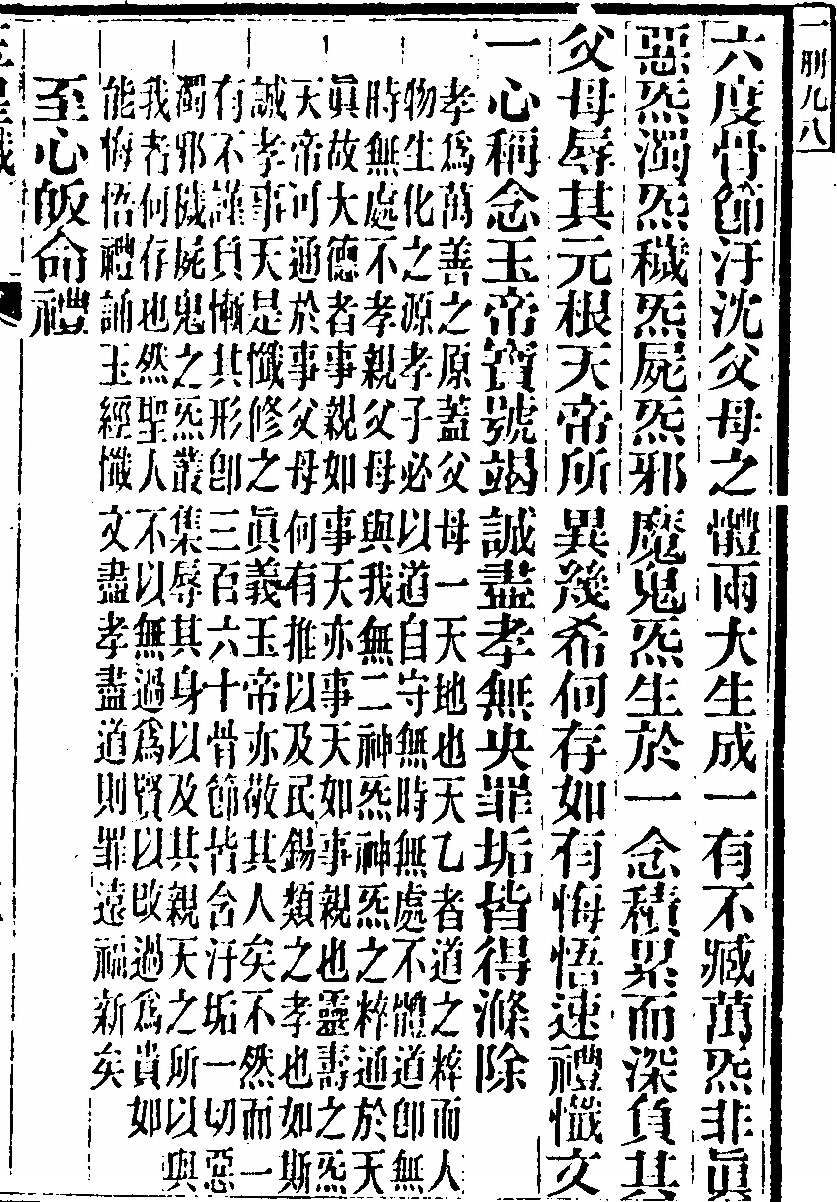 一刪九八
六度骨節汙沈父母之體兩大生成一有不臧萬炁非眞
惡炁濁炁穢炁屍炁邪魔鬼炁生於一念積累而深負其
父母辱其元根天帝所異幾希何存如有悔悟速禮懺文
一心稱念玉帝寶號竭誠盡孝無央罪垢皆得滌除
孝爲萬善之原蓋父母一天地也天乙者道之粹而人
物生化之源孝子必以道自守無時無處不體道卽無
時無處不孝親父母與我無二神炁神炁之粹通於天
眞故大德者事親如事天亦事天如事親也靈壽之炁
天帝可通於事父母何有推以及民錫類之孝也如斯
誠孝事天是懺修之眞義玉帝亦敬其人矣不然而一
有不謹負慚其形卽三百六十骨節皆含汙垢一切惡
濁邪穢屍鬼之炁叢集辱其身以及其親天之所以與
我者何存也然聖人不以無過爲賢以改過爲貴如
能悔悟禮誦玉經懺文盡孝盡道則罪遠福新矣
至心皈命禮